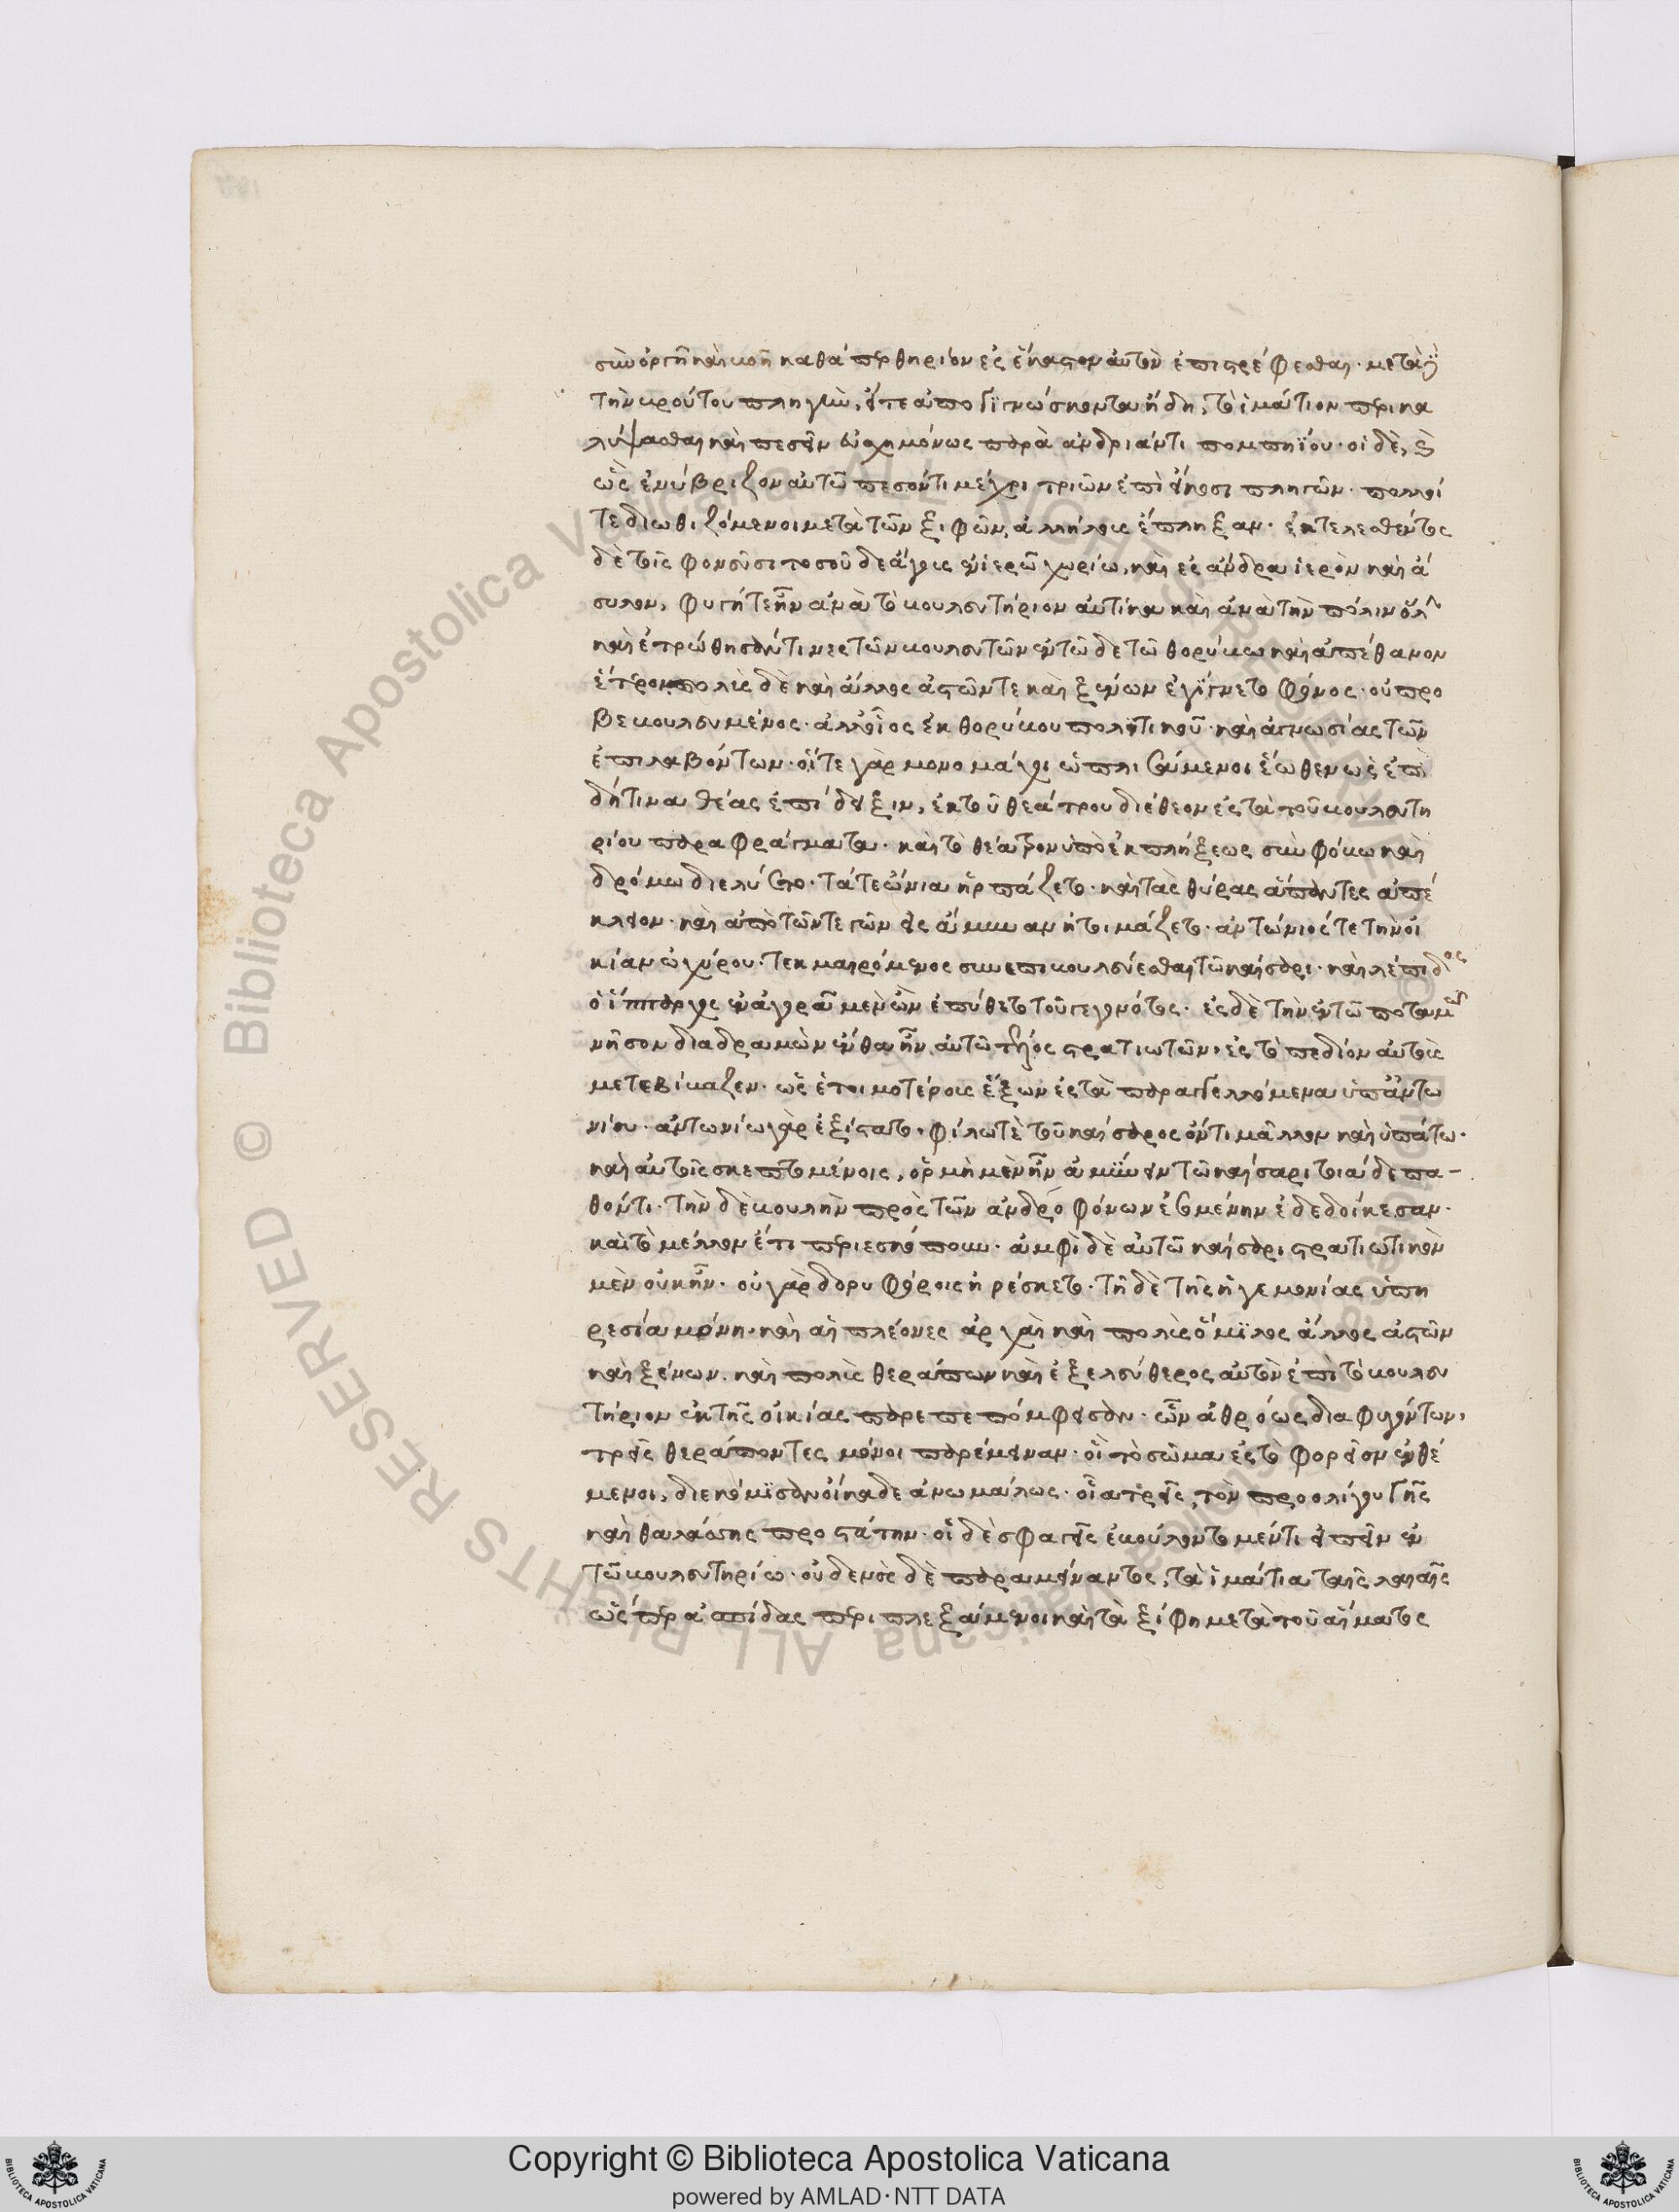 σὺν ὀργῆ καὶ βοῆ καθάπερ θηρίον ἐς ἕκαστον αὐτῶν ἐπιστρέφεσθαι. μετὰ δὲ
τὴν βρούτου πληγὴν, εἴτε ἀπογιγνώσκοντα ἤδη, τὸ ἱμάτιον περικα
λύψασθαι καὶ πεσεῖν εὐσχημόνως παρὰ ἀνδριάντι πομπηΐου. οἱ δὲ, καὶ
ὣς ἐνύβριζον αὐτῶ πεσόντι μέχρι τριῶν ἐπὶ εἴκοσι πληγῶν. πολλοί
τε διωθιζόμενοι μετὰ τῶν ξιφῶν, ἀλλήλους ἔπληξαν. ἐκτελεσθέντος
δὲ τοῖς φονεῦσι τοσοῦδε ἄγους ἐν ἱερῶ χωρίω, καὶ ἐς ἄνδρα ἱερὸν καὶ ἄ
συλον, φυγή τε ἦν ἀνὰ τὸ βουλευτήριον αὐτίκα καὶ ἀνὰ τὴν πόλιν ὅλην
καὶ ἐτρώθησάν τινες τῶν βουλευτῶν ἐν τῶδε τῶ θορύβω καὶ ἀπέθανον
ἕτεροι πολὺς δὲ καὶ ἄλλος ἀστῶν τε καὶ ξένων ἐγίγνετο φόνος. οὐ προ
βεβουλευμένος. ἀλλ' οἷος ἐκ θορύβου πολιτικοῦ. καὶ ἀγνωσίας τῶν
ἐπιλαβόντων. οἵ τε γὰρ μονομάχοι ὡπλισμένοι ἕωθεν ὡς ἐπὶ
δή τινα θέας ἐπίδειξιν, ἐκ τοῦ θεάτρου διέθεον ἐς τὰ τοῦ βουλευτη
ρίου παραφράγματα. καὶ τὸ θέατρον ὑπὸ ἐκπλήξεως σὺν φόβω καὶ
δρόμω διελύετο. τά τε ὤνια ἡρπάζετο. καὶ τὰς θύρας ἅπαντες ἀπέ
κλειον. καὶ ἀπὸ τῶν τεγῶν εἰς ἄμυναν ἡτοιμάζετο. ἀντώνιός τε τὴν οἰ
κίαν ὠχύρου. τεκμαιρόμενος συνεπιβουλεύεσθαι τῶ καίσαρι. καὶ λέπιδος
ὁ ἵππαρχος ἐν ἀγορᾶ μὲν ὢν ἐπύθετο τοῦ γεγονότος. ἐς δὲ τὴν ἐν τῶ ποταμῶ
νῆσον διαδραμὼν ἔνθα ἦν αὐτῶ τέλος στρατιωτῶν, ἐς τὸ πεδίον αὐτοὺς
μετεβίβαζεν. ὡς ἑτοιμοτέροις ἕξων ἐς τὰ παραγγελλόμενα ὑπ' ἀντω
νίου. ἀντωνίω γὰρ ἐξίστατο, φίλω τε τοῦ καίσαρος ὄντι μᾶλλον καὶ ὑπάτω.
καὶ αὐτοῖς σκεπτομένοις, ὁρμὴ μὲν ἦν ἀμύνειν τῶ καίσαρι τοιάδε πα-
θόντι. τὴν δὲ βουλὴν πρὸς τῶν ἀνδροφόνων ἐσομένην ἐδεδοίκεσαν.
καὶ τὸ μέλλον ἔτι περιεσκόπουν. ἀμφὶ δὲ αὐτῶ καίσαρι στρατιωτικὸν
μὲν οὐκ ἦν. οὐ γὰρ δορυφόροις ἠρέσκετο. τῆ δὲ τῆς ἡγεμονίας ὑπη
ρεσία μόνη. καὶ αἱ πλέονες ἀρχαὶ καὶ πολὺς ὅμιλος ἄλλος ἀστῶν
καὶ ξένων. καὶ πολὺς θεράπων καὶ ἐξελεύθερος αὐτὸν ἐπὶ τὸ βουλευ
τήριον ἐκ τῆς οἰκίας παρεπεπόμφεισαν. ὧν ἀθρόως διαφυγόντων,
τρεῖς θεράποντες μόνοι παρέμειναν. οἳ τὸ σῶμα ἐς τὸ φορεῖον ἐνθέ
μενοι, διεκόμισαν οἴκαδε ἀνωμάλως. οἷα τρεῖς, τὸν πρὸ ὀλίγου γῆς
καὶ θαλάσσης προστάτην. οἱ δὲ σφαγεῖς ἐβούλοντο μέν τι εἰπεῖν ἐν
τῶ βουλευτηρίω. οὐδενὸς δὲ παραμείναντος, τὰ ἱμάτια ταῖς λαιαῖς
ὥσπερ ἀσπίδας περιπλεξάμενοι καὶ τὰ ξίφη μετὰ τοῦ αἵματος
Copyright © Biblioteca Apostolica Vaticana
powered by AMLAD·NTT DATA